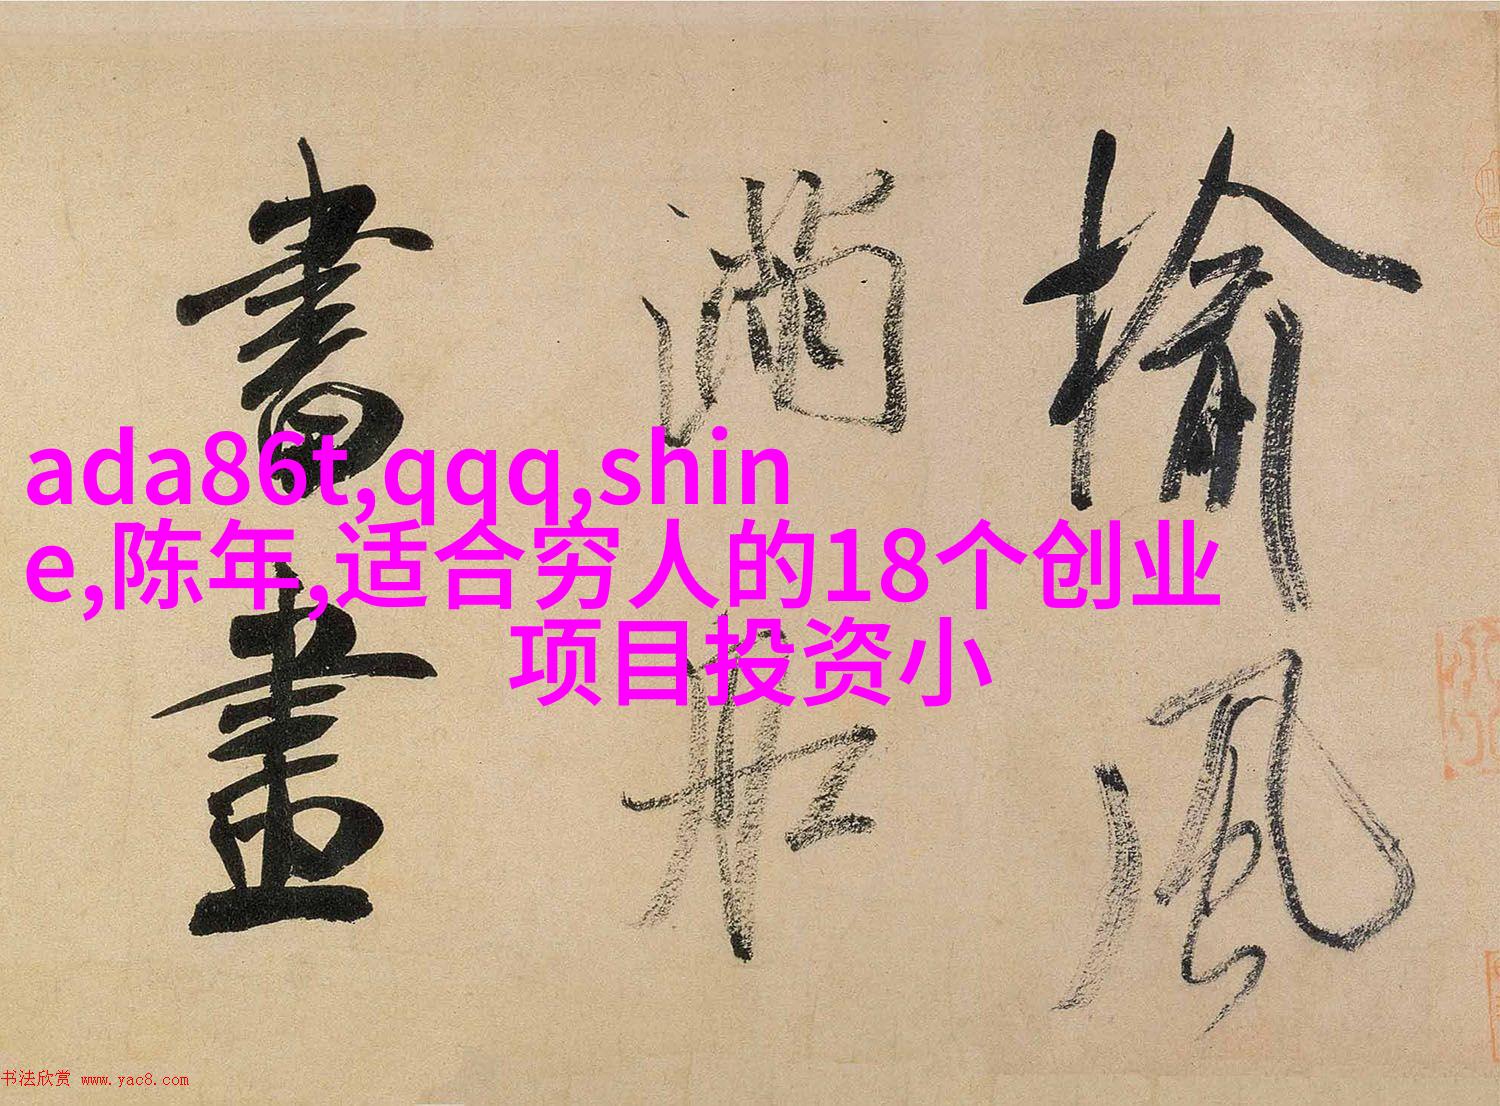 榆風
滿舡
書畫
ada86t,qqq,shin
e,陈年,适合穷人的18个创业
项目投资小
书法欣赏 www.yac8.com